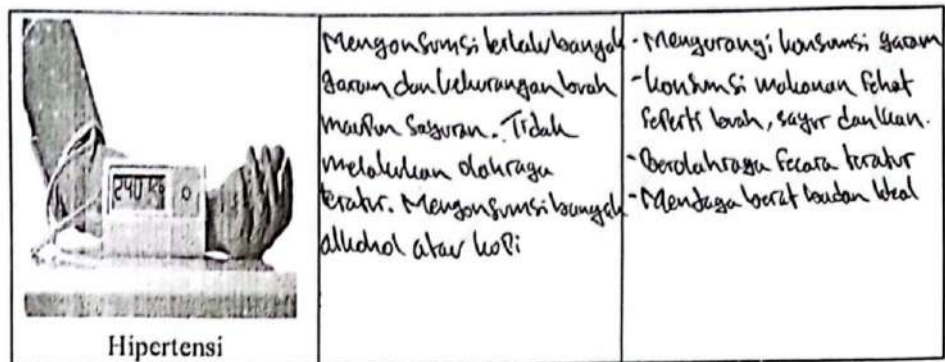 240
Hipertensi
Mengonsumsi terlalu banyak
garam dan kekurangan buah
maupun sayuran. Tidak
melakukan olahraga
teratur. Mengonsumsi banyak
alkohol atau kopi
- Mengurangi konsumsi garam
- konsumsi makanan sehat
seperti buah, sayur dan ikan.
- Berolahraga secara teratur
- Menjaga berat badan ideal